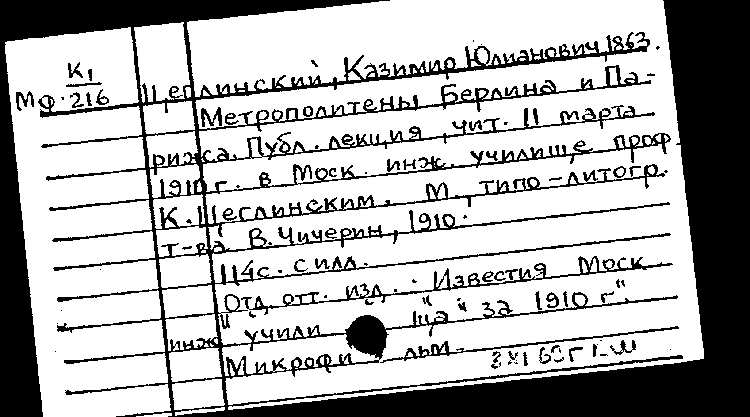 К1
МФ.216
Цеглинский, Казимир Юлианович, 1863.
Метрополитены Берлина и Па-
рижа. Публ. лекция, чит. 11 марта
1910 г. в Моск. инж. училище проф.
К. Цеглинским. М., типо-литогр.
т-ва В. Чичерин, 1910.
114с. с илл.
Отд. отт. изд.: "Известия Моск.
инж. училища" за 1910 г".
Микрофильм.